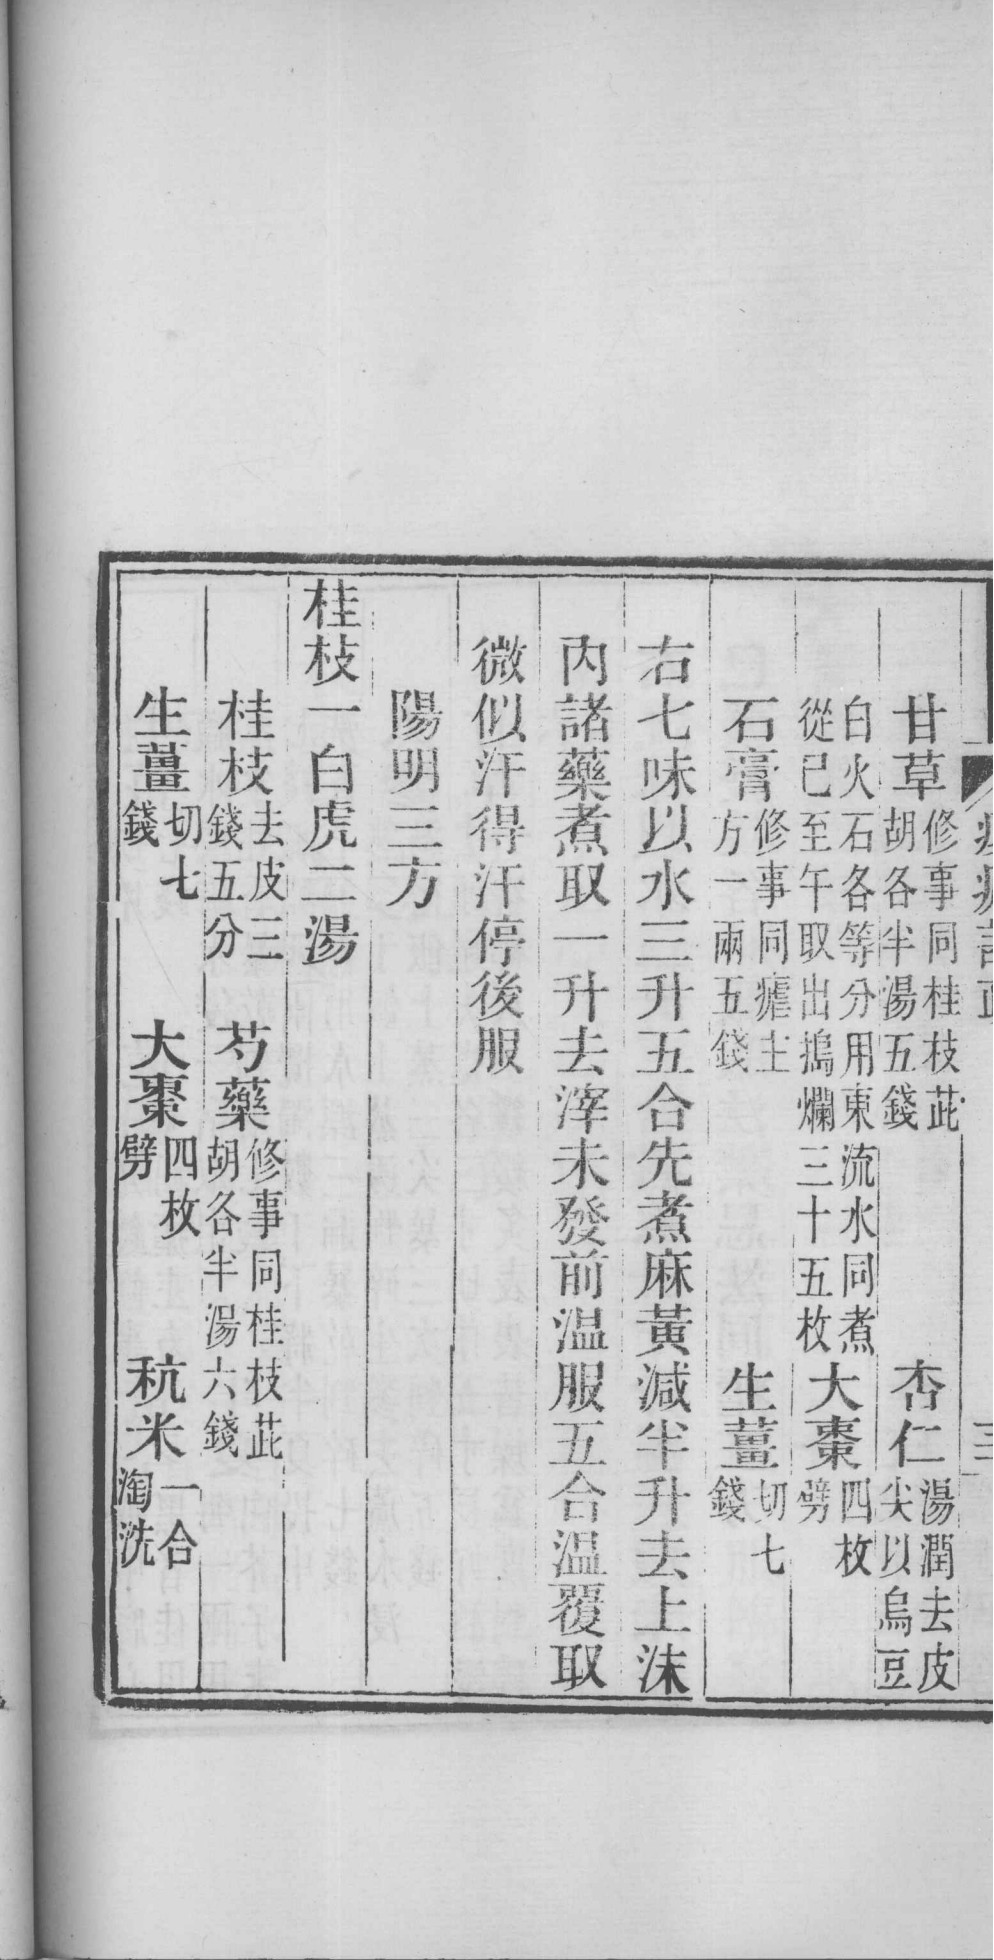 甘草修事同桂枝茈胡各半湯五錢 杏仁湯潤去皮尖以烏豆
白火石各等分用東流水同煮從巳至午取出搗爛三十五枚 大棗四枚劈
石膏修事同瘧主方一兩五錢 生薑切七錢
右七味以水三升五合先煮麻黃減半升去上沫
內諸藥煮取一升去滓未發前温服五合温覆取
微似汗得汗停後服
陽明三方
桂枝一白虎二湯
桂枝去皮三錢五分 芍藥修事同桂枝茈胡各半湯六錢
生薑切七錢 大棗四枚劈 秔米一合淘洗